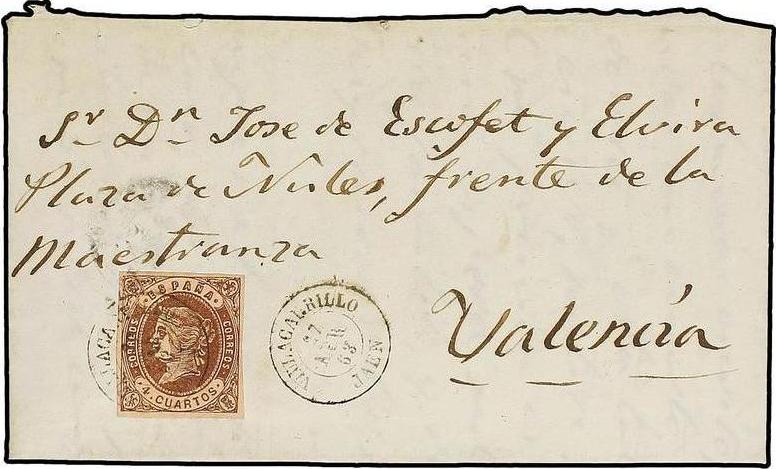 Sr. Dn. Jose de Escofet y Elvira
Plaza de Nules, frente de la
Maestranza
Valencia
ESPAÑA
CORREOS CORREOS
4 CUARTOS
VILLACARRILLO
27
ABR
63
JAEN